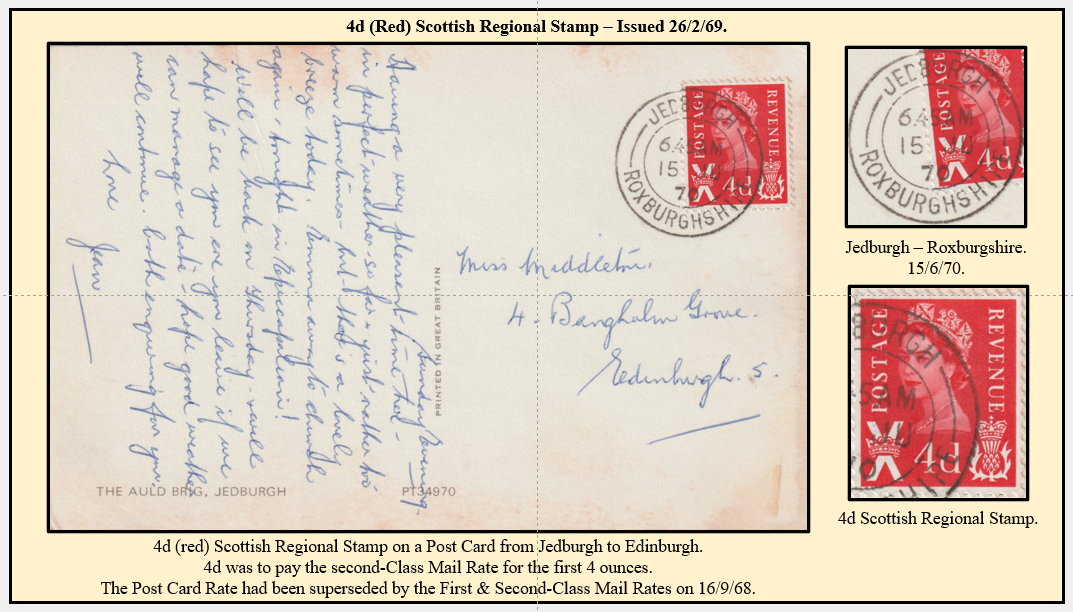 4d (Red) Scottish Regional Stamp – Issued 26/2/69.
Sunday Evening.
Having a very pleasant time here -
in perfect weather so far - just rather too
warm sometimes - but that's a lovely
breeze today. Emma away to church
again - tonight in
Will be back on Thursday - will
hope to see you ere you leave if we
can manage a date - hope good weather
will continue. both enquiring for you.
Love
Jean
THE AULD BRIG, JEDBURGH
PT34970
PRINTED IN GREAT BRITAIN
JEDBURGH
6.45AM
15 JU
70
ROXBURGHSHIRE
POSTAGE
REVENUE
4d
Miss Middleton.
4. Bangholm Grove.
Edinburgh. 5.
JEDBURGH
6.45AM
15 JU
70
ROXBURGHSHI
POSTAGE
4d
Jedburgh – Roxburgshire.
15/6/70.
POSTAGE
REVENUE
BURGH
5AM
JU
70
4d
4d Scottish Regional Stamp.
4d (red) Scottish Regional Stamp on a Post Card from Jedburgh to Edinburgh.
4d was to pay the second-Class Mail Rate for the first 4 ounces.
The Post Card Rate had been superseded by the First & Second-Class Mail Rates on 16/9/68.